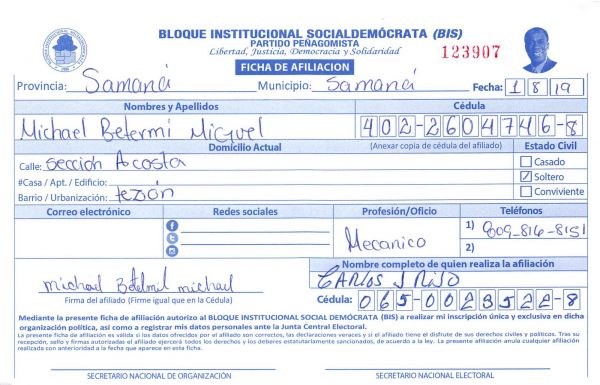 BLOQUE INSTITUCIONAL SOCIALDEMÓCRATA (BIS)
PARTIDO PEÑAGOMISTA
Libertad, Justicia, Democracia y Solidaridad
123907
FICHA DE AFILIACION
Provincia: Samaná Municipio: Samaná Fecha: 1 8 19
Nombres y Apellidos Cédula
Michael Betermi Miguel 402-2604746-8
Domicilio Actual (Anexar copia de cédula del afiliado) Estado Civil
Calle: Sección Acosta Casado
#Casa / Apt. / Edificio: Soltero
Barrio / Urbanización: tezón Conviviente
Correo electrónico Redes sociales Profesión/Oficio Teléfonos
Mecanico 1) 809-816-8151
2)
Nombre completo de quien realiza la afiliación
michael michael CARLOS J RIJO
Firma del afiliado (Firme igual que en la Cédula) Cédula: 065-0023522-8
Mediante la presente ficha de afiliación autorizo al BLOQUE INSTITUCIONAL SOCIAL DEMÓCRATA (BIS) a realizar mi inscripción única y exclusiva en dicha
organización política, así como a registrar mis datos personales ante la Junta Central Electoral.
La presente ficha de afiliación es válida si los datos ofrecidos por el afiliado son correctos, las declaraciones veraces y si el afiliado tiene el disfrute de sus derechos civiles y políticos. Tras su
recepción, sello y firmas autorizadas el afiliado ejercerá todos los derechos y los deberes estatutariamente sancionados, de acuerdo a la ley. La presente afiliación anula cualquier afiliación
realizada con anterioridad a la fecha que aparece en esta ficha.
SECRETARIO NACIONAL DE ORGANIZACIÓN SECRETARIO NACIONAL ELECTORAL